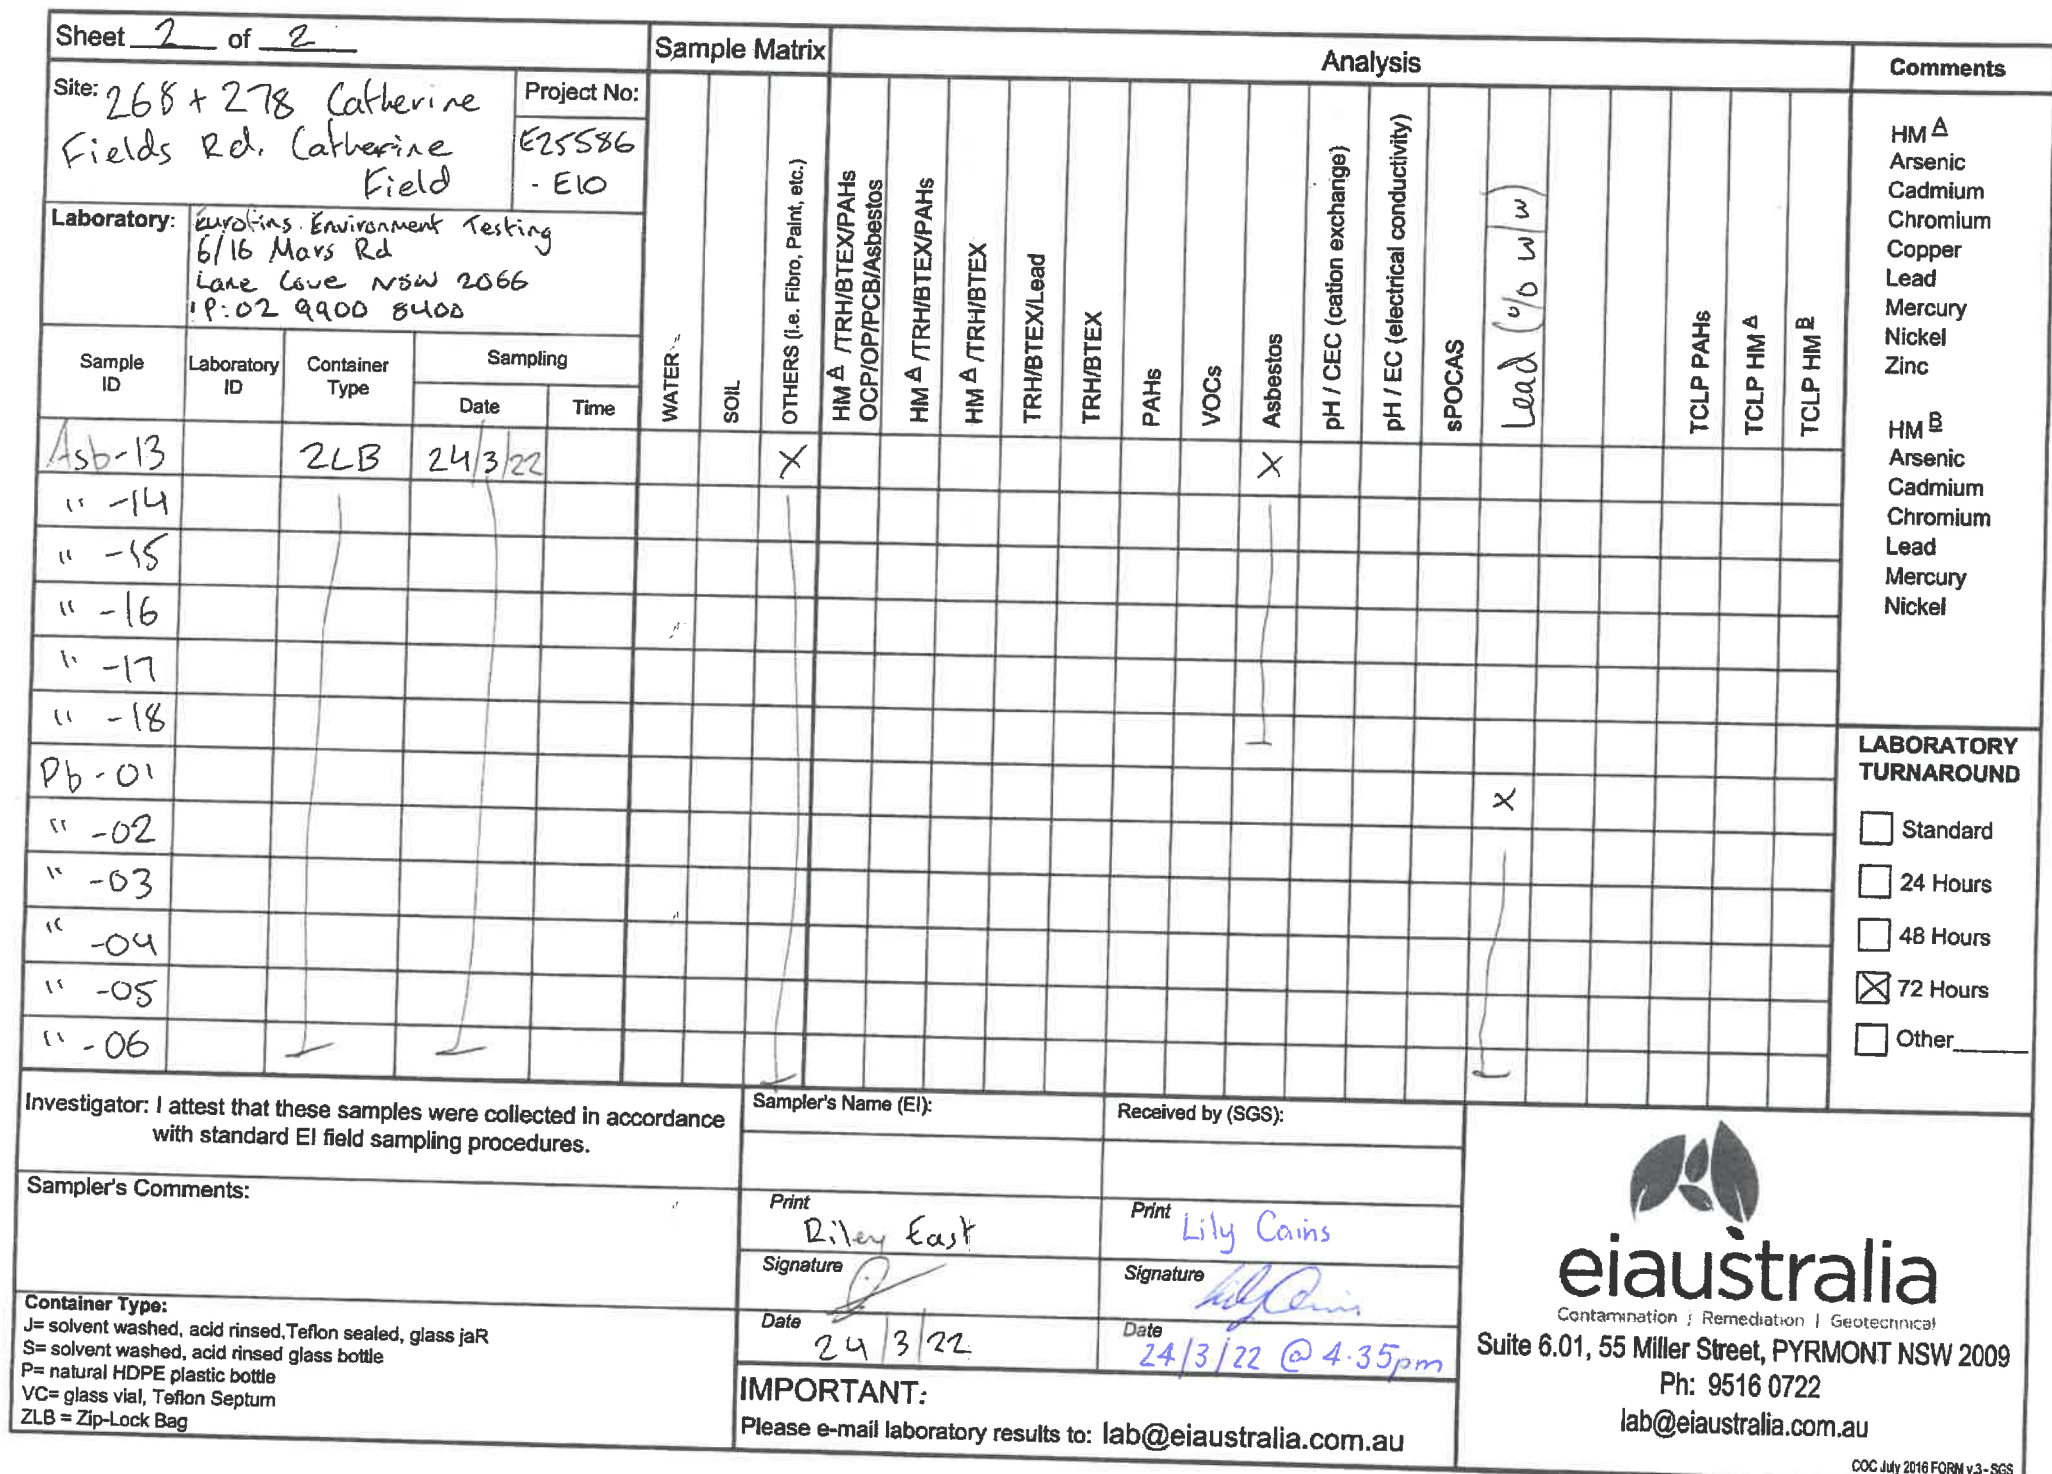 Sheet 2 of 2
Sample Matrix
Analysis
Comments
Site: 268 + 278 Catherine
Fields Rd. Catherine
Field
Project No:
E25586
- E10
Laboratory: Eurofins Environment Testing
6/16 Mars Rd
Lane Cove NSW 2066
P: 02 9900 8400
Sample ID
Laboratory ID
Container Type
Sampling
Date
Time
WATER
SOIL
OTHERS (i.e. Fibro, Paint, etc.)
HM A /TRH/BTEX/PAHs
OCP/OP/PCB/Asbestos
HM A /TRH/BTEX/PAHs
HM A /TRH/BTEX
TRH/BTEX/Lead
TRH/BTEX
PAHs
VOCs
Asbestos
pH / CEC (cation exchange)
pH / EC (electrical conductivity)
sPOCAS
Lead (% w/w)
TCLP PAHs
TCLP HM A
TCLP HM B
HM A
Arsenic
Cadmium
Chromium
Copper
Lead
Mercury
Nickel
Zinc
HM B
Arsenic
Cadmium
Chromium
Lead
Mercury
Nickel
Asb-13 ZLB 24/3/22 X X
" -14
" -15
" -16
" -17
" -18
Pb-01 X
" -02
" -03
" -04
" -05
" -06
LABORATORY
TURNAROUND
Standard
24 Hours
48 Hours
X 72 Hours
Other______
Investigator: I attest that these samples were collected in accordance
with standard EI field sampling procedures.
Sampler's Comments:
Container Type:
J= solvent washed, acid rinsed,Teflon sealed, glass jaR
S= solvent washed, acid rinsed glass bottle
P= natural HDPE plastic bottle
VC= glass vial, Teflon Septum
ZLB = Zip-Lock Bag
Sampler's Name (EI):
Print
Riley East
Signature
Date
24/3/22
Received by (SGS):
Print
Lily Cains
Signature
Date
24/3/22 @ 4.35pm
IMPORTANT:
Please e-mail laboratory results to: lab@eiaustralia.com.au
eiaustralia
Contamination | Remediation | Geotechnical
Suite 6.01, 55 Miller Street, PYRMONT NSW 2009
Ph: 9516 0722
lab@eiaustralia.com.au
COC July 2016 FORM v.3 - SGS